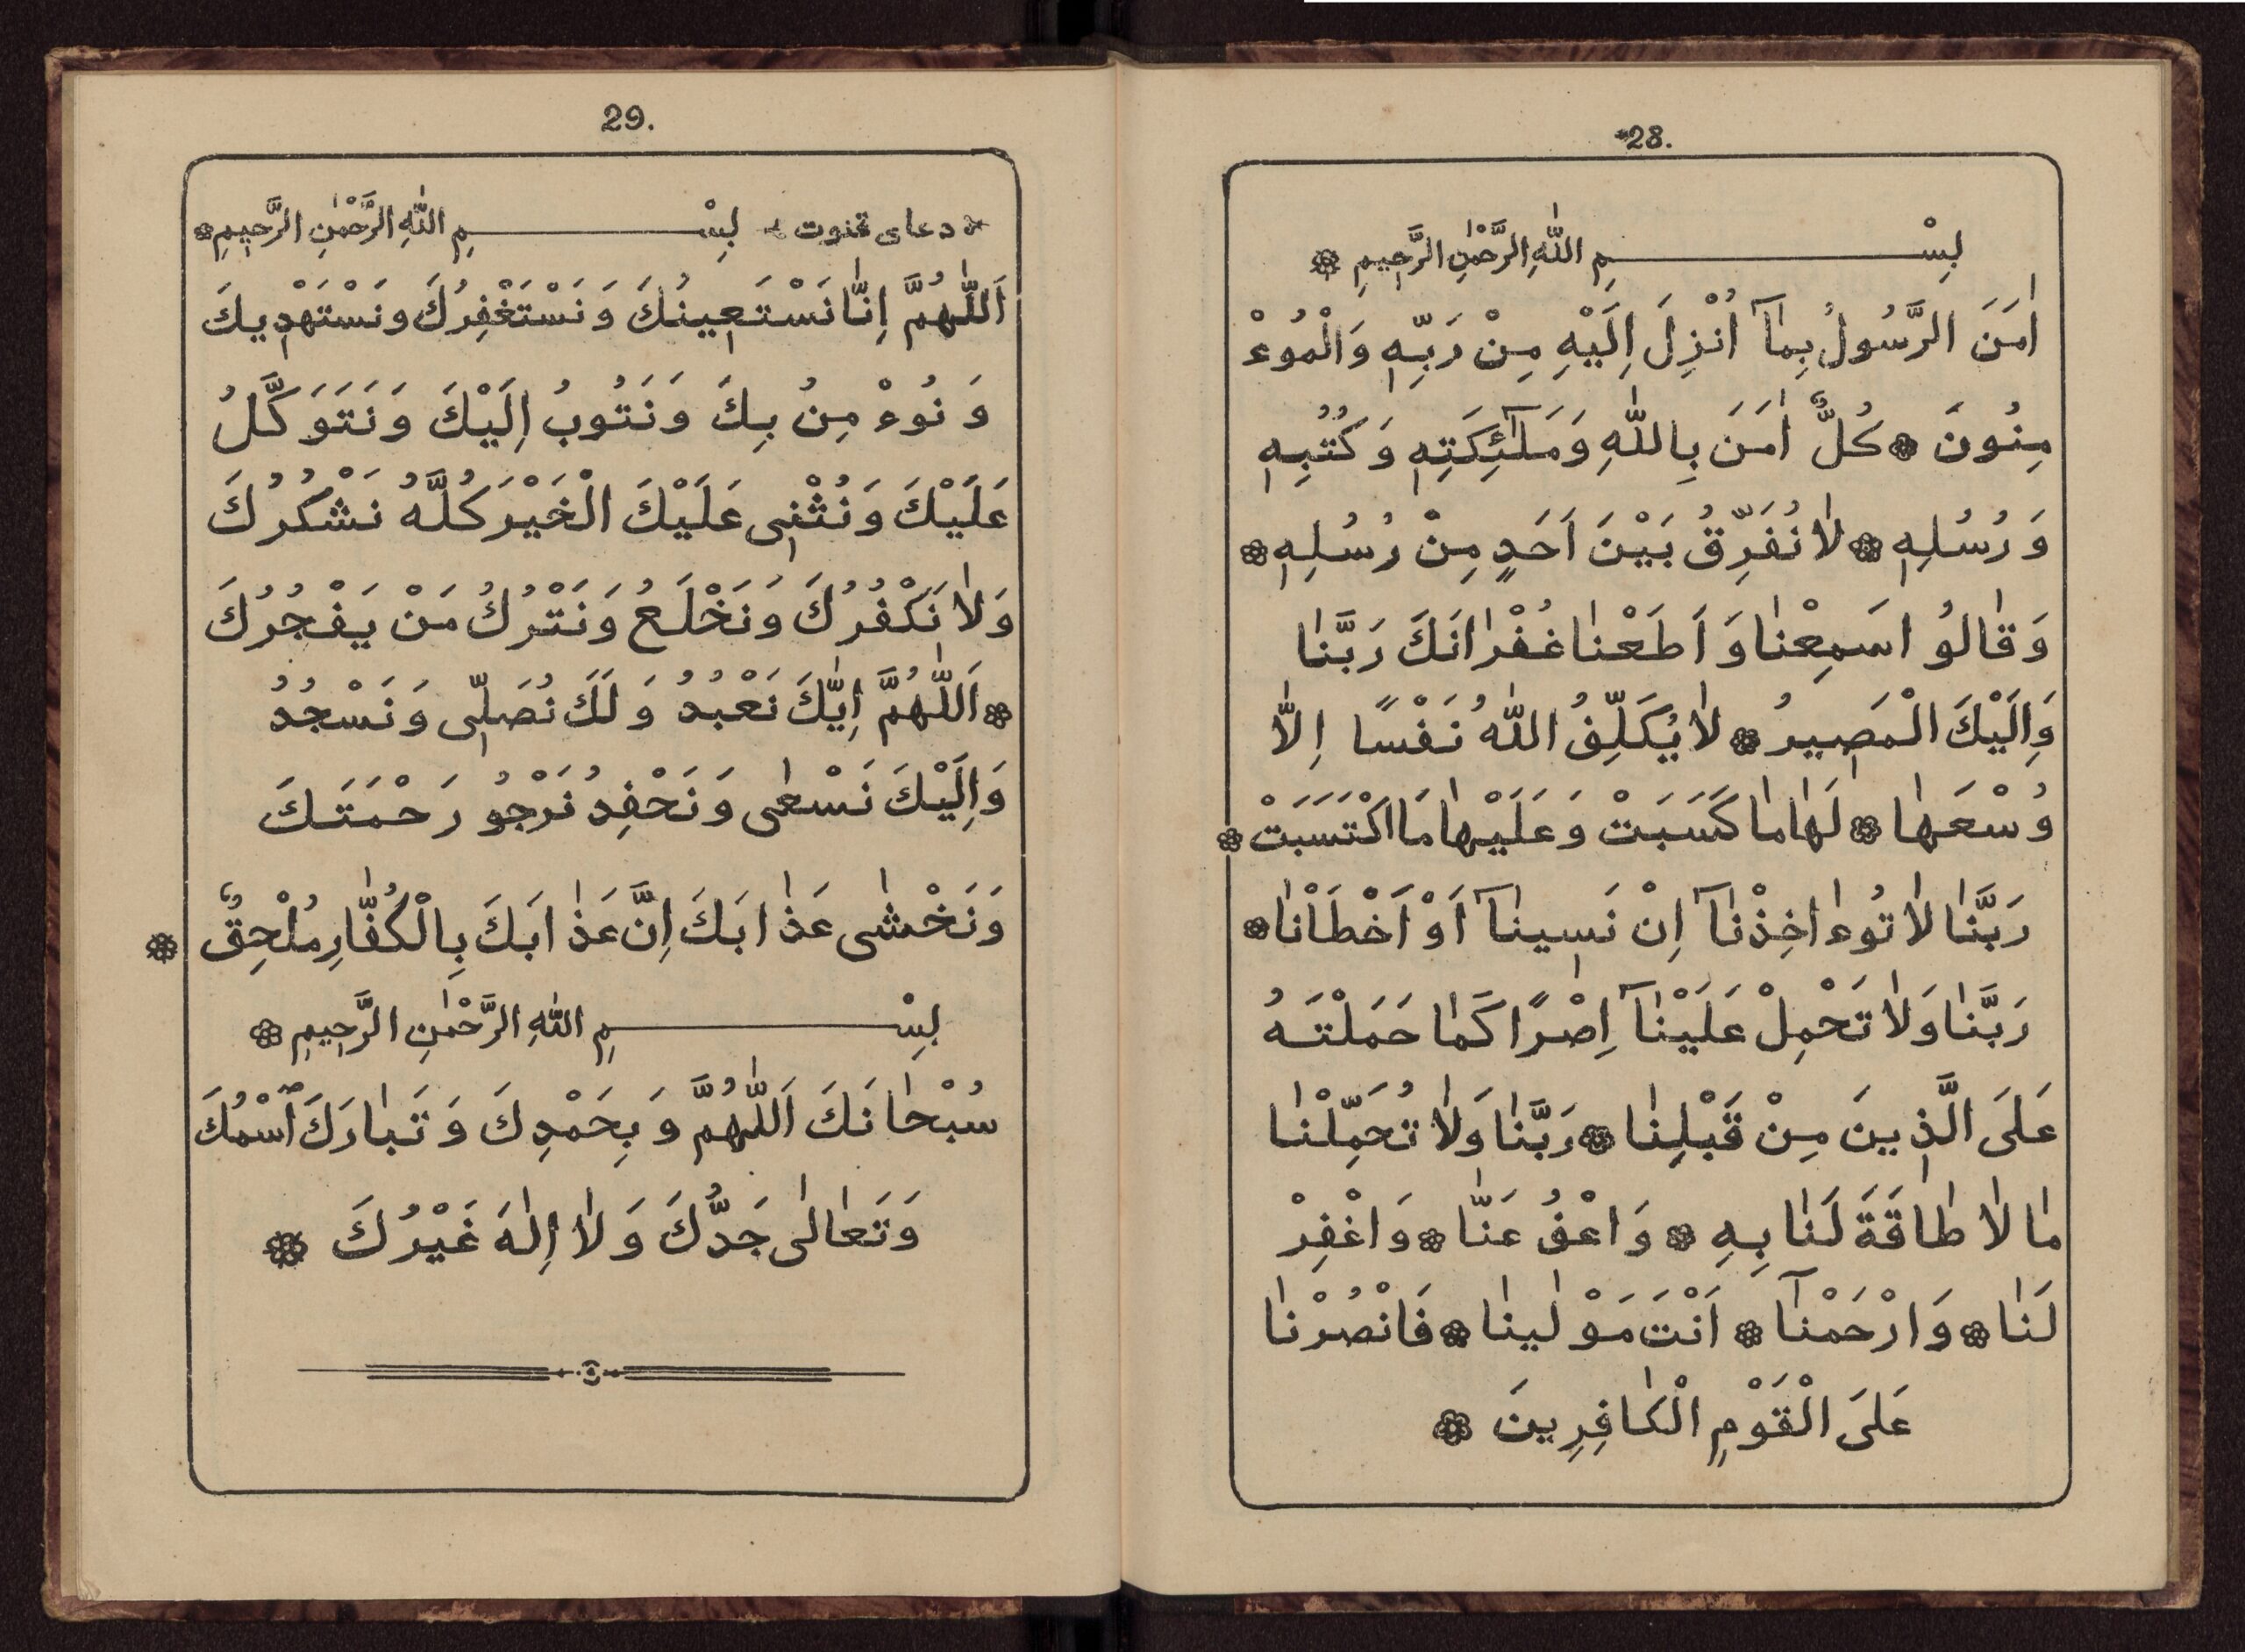 28.
بِسْمِ اللّٰهِ الرَّحْمٰنِ الرَّحِيمِ
اٰمَنَ الرَّسُولُ بِمٰٓا اُنْزِلَ اِلَيْهِ مِنْ رَبِّهٖ وَالْمُوءْ
مِنُونَ كُلٌّ اٰمَنَ بِاللّٰهِ وَمَلٰٓئِكَتِهٖ وَكُتُبِهٖ
وَرُسُلِهٖ لاٰ نُفَرِّقُ بَيْنَ اَحَدٍ مِنْ رُسُلِهٖ
وَقٰالُو اسَمِعْنٰا وَ اَطَعْنٰا غُفْرٰانَكَ رَبَّنٰا
وَاِلَيْكَ الْمَصٖيرُ لاٰ يُكَلِّفُ اللّٰهُ نَفْسًا اِلّٰا
وُسْعَهٰا لَهٰا مٰا كَسَبَتْ وَعَلَيْهٰا مَا اكْتَسَبَتْ
رَبَّنٰا لاٰ تُوءٰاخِذْنٰٓا اِنْ نَسٖينٰٓا اَوْ اَخْطَاْنٰا
رَبَّنٰا وَلاٰ تَحْمِلْ عَلَيْنٰٓا اِصْرًا كَمٰا حَمَلْتَهُ
عَلَى الَّذٖينَ مِنْ قَبْلِنٰا رَبَّنٰا وَلاٰ تُحَمِّلْنٰا
مٰا لاٰ طٰاقَةَ لَنٰا بِهِ وَاعْفُ عَنّٰا وَاغْفِرْ
لَنٰا وَارْحَمْنٰٓا اَنْتَ مَوْلٰينٰا فَانْصُرْنٰا
عَلَى الْقَوْمِ الْكٰافِرِينَ
29.
دعاى قنوت بِسْمِ اللّٰهِ الرَّحْمٰنِ الرَّحِيمِ
اَللّٰهُمَّ اِنّٰا نَسْتَعٖينُكَ وَنَسْتَغْفِرُكَ وَنَسْتَهْدٖيكَ
وَنُوءْمِنُ بِكَ وَنَتُوبُ اِلَيْكَ وَنَتَوَكَّلُ
عَلَيْكَ وَنُثْنٖى عَلَيْكَ الْخَيْرَ كُلَّهُ نَشْكُرُكَ
وَلاٰ نَكْفُرُكَ وَنَخْلَعُ وَنَتْرُكُ مَنْ يَفْجُرُكَ
اَللّٰهُمَّ اِيّٰكَ نَعْبُدُ وَلَكَ نُصَلّٖى وَنَسْجُدُ
وَاِلَيْكَ نَسْعٰى وَنَحْفِدُ نَرْجُو رَحْمَتَكَ
وَنَخْشٰى عَذٰابَكَ اِنَّ عَذٰابَكَ بِالْكُفّٰارِ مُلْحِقٌ
بِسْمِ اللّٰهِ الرَّحْمٰنِ الرَّحِيمِ
سُبْحٰانَكَ اَللّٰهُمَّ وَبِحَمْدِكَ وَتَبٰارَكَ ٱسْمُكَ
وَتَعٰالٰى جَدُّكَ وَلاٰ اِلٰهَ غَيْرُكَ